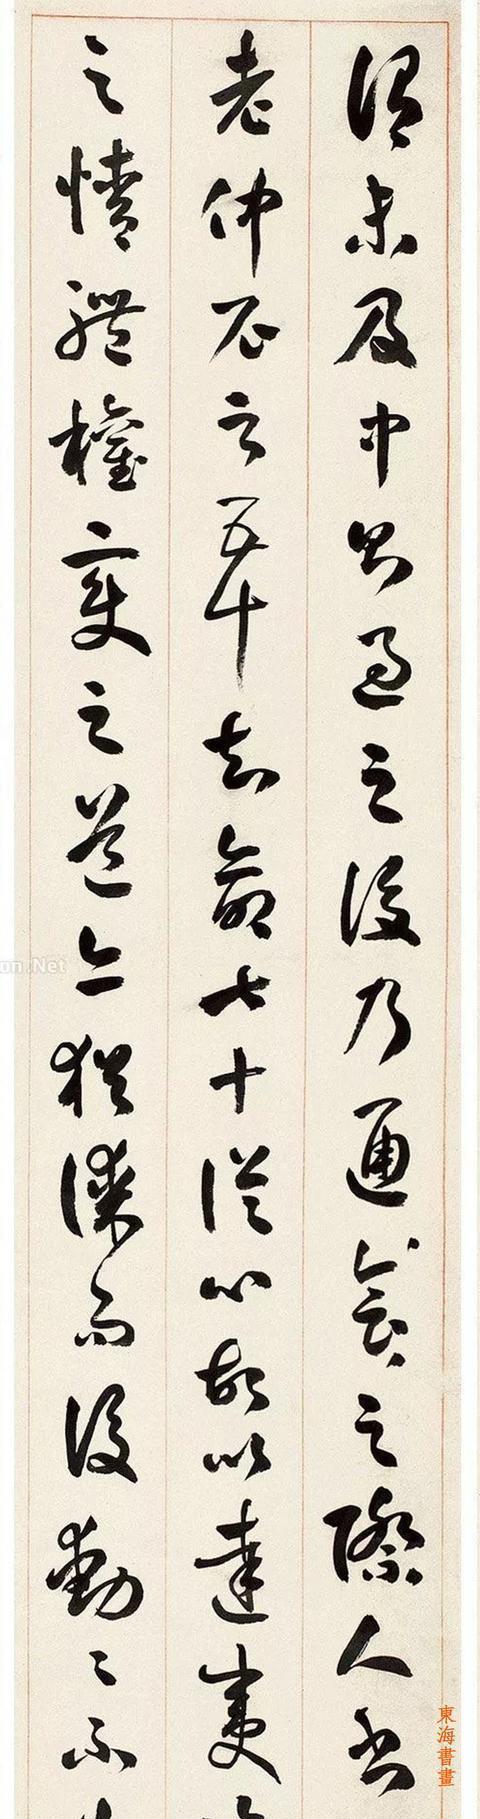 謂未及中則過之後乃通會之際人書
老仲尼云五十知命七十從心故以達夷
之情體權變之道亦猶謀而後動〻不
東海書畫
on.Net